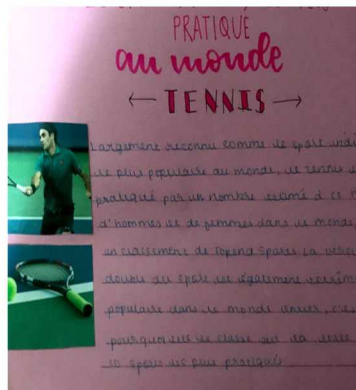 PRATIQUÉ
au monde
← TENNIS →
Largement reconnu comme le sport
le plus populaire au monde, le tennis
pratiqué par un nombre estimé à
d'hommes et de femmes dans le monde
un classement de Topend Sports La
double du sport est également
populaire dans le monde entier, c'est
pourquoi se classe sur la
10 sports les plus pratiqué